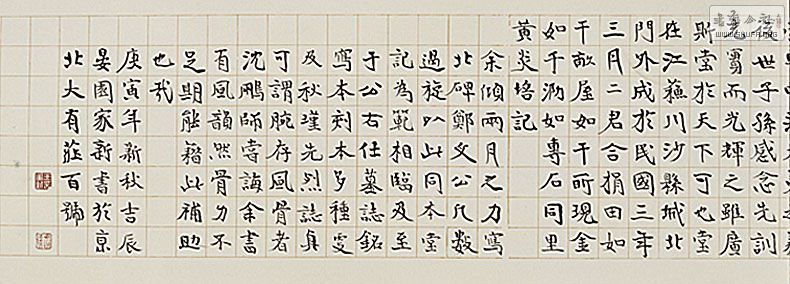 後世子孫感念先訓
而光輝之雖廣
斯堂於天下可也堂
在江蘇川沙縣城北
門外成於民國三年
三月二君合捐田如
干畝屋如干所現金
如干泐如專石同里
黄炎培記
余傾兩月之力寫
北碑鄭文公凡數
過旋以此同本堂
記為範相臨及至
于公右任墓誌銘
寫本刻本多種雯
及秋瑾先烈誌真
可謂腕存風骨者
沈鵬師嘗誨余書
有風韻然骨力不
足期能藉此補助
也哉
庚寅年新秋吉辰
晏園家新書於京
北大有莊百號